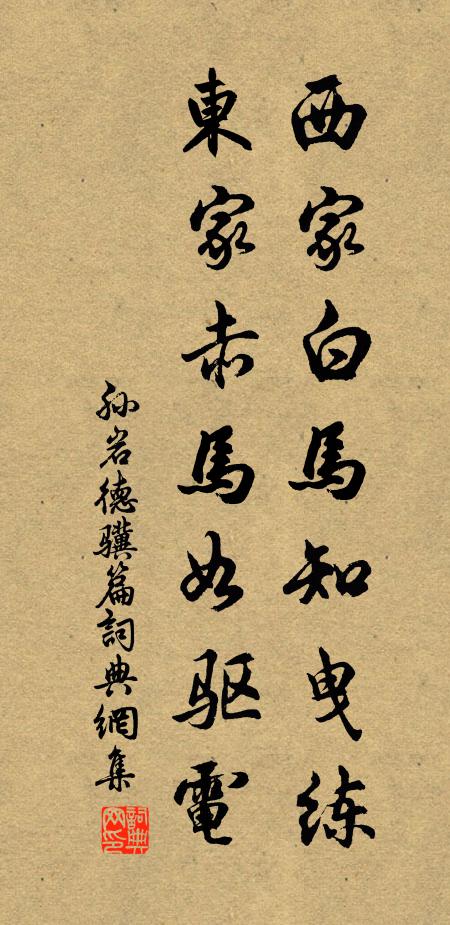 西家白馬知曳练
東家赤馬如驱電
孙岩德骥篇詞典網集
詞典网印